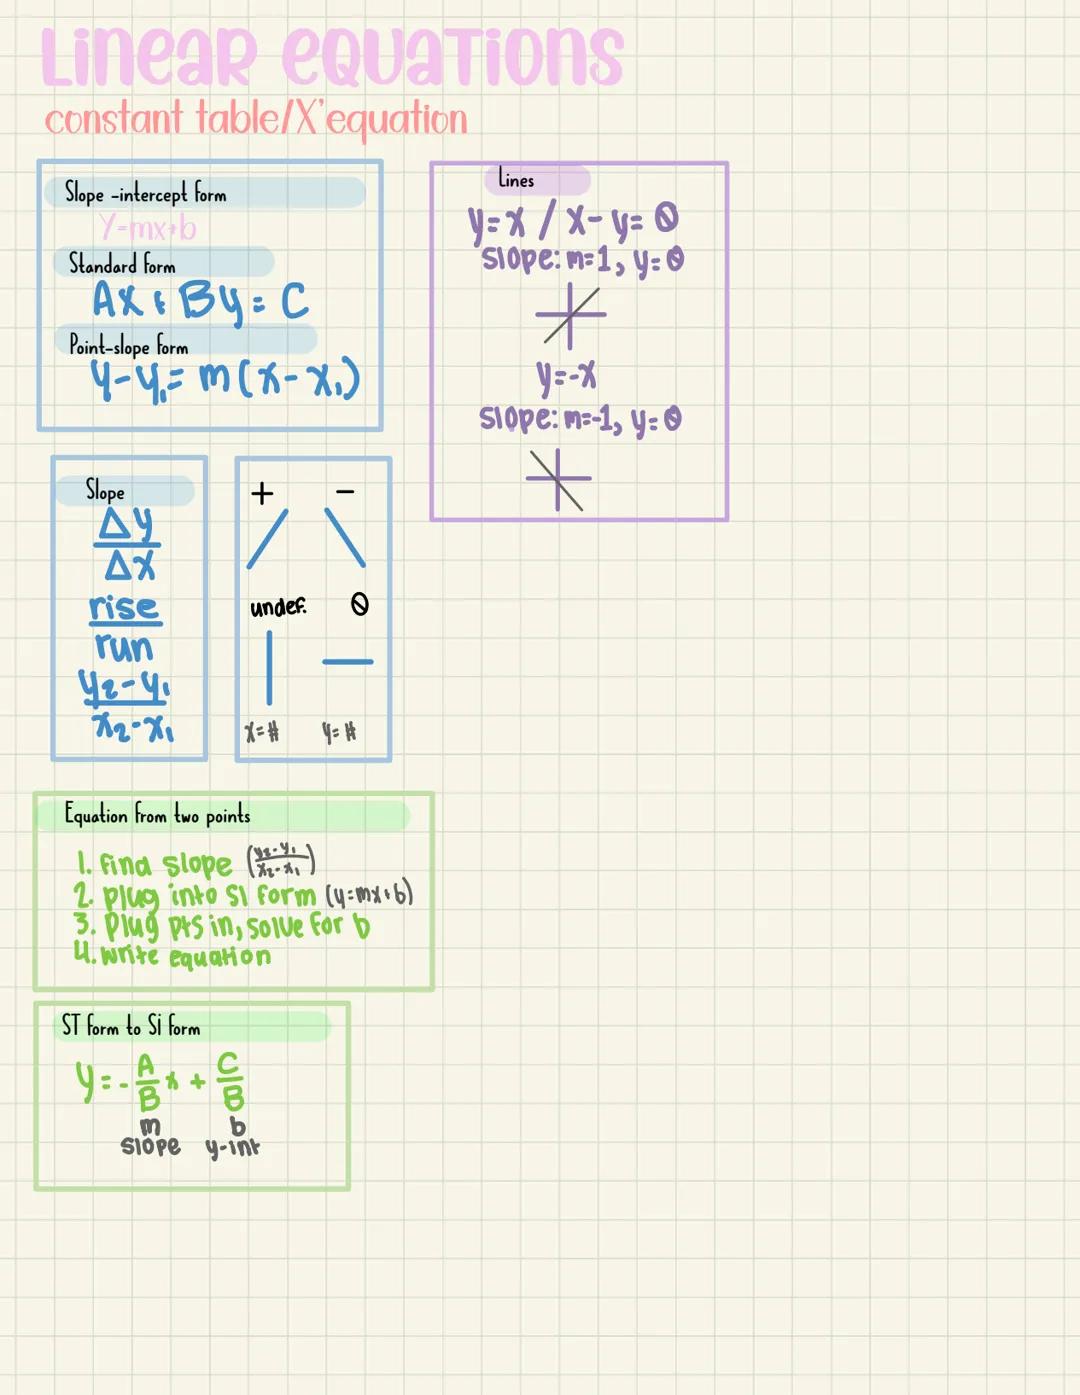 Linear equations
constant table/X'equation
Slope -intercept form
Y=mx+b
Standard form
Ax + By = C
Point-slope form
y-y₁= m(x-x₁)
Slope
Δy
Δx
rise
run
y₂-y₁
x₂-x₁
+ -
undef. 0
x=# y=#
Lines
y=x / x-y=0
slope: m=1, y=0
y=-x
slope: m=-1, y=0
Equation from two points
1. find slope (y₂-y₁/x₂-x₁)
2. plug into SI form (y=mx+b)
3. Plug pts in, solve for b
4. write equation
ST form to SI form
y=-A/B x + C/B
m b
slope y-int